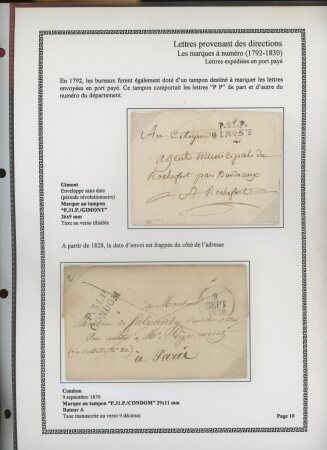 Lettres provenant des directions
Les marques à numéro (1792-1830)
Lettres expédiées en port payé
En 1792, les bureaux furent également doté d'un tampon destiné à marquer les lettres
envoyées en port payé. Ce tampon comportait les lettres "P P" de part et d'autre du
numéro du département.
P.31.P.
GIMONT
Au Citoyen
agent municipal de
Rochefort par Bordeaux
A Rochefort
Gimont
Enveloppe sans date
(période révolutionnaire)
Marque au tampon
"P.31.P./GIMONT"
26x9 mm
Taxe au verso illisible
A partir de 1828, la date d'envoi est frappée du côté de l'adresse
P.31.P.
CONDOM
9
SEPT
1830
à Monsieur
à Paris
Condom
9 septembre 1830
Marque au tampon "P.31.P./CONDOM" 29x11 mm
Dateur A
Taxe manuscrite au verso 9 décimes
Page 10